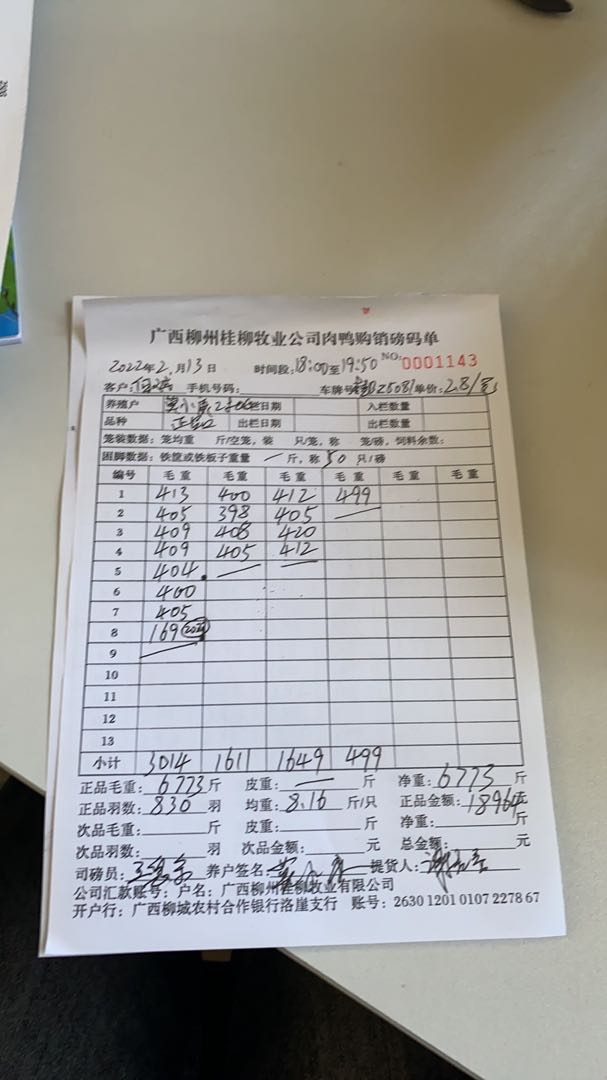 广西柳州桂柳牧业公司肉鸭购销磅码单
2022年2月13日 时间段:18:00至19:50 NO:0001143
客户: 手机号码: 车牌号 Z5081 单价:2.8/
养殖户 栏日期 入栏数量
品种 出栏日期 出栏数量
笼装数据:笼均重 斤/空笼,装 只/笼,称 笼/磅,饲料余数:
困脚数据:铁筐或铁板子重量 — 斤,称 50 只/磅
编号 毛重 毛重 毛重 毛重 毛重 毛重
1 413 400 412 499
2 405 398 405
3 409 408 420
4 409 405 412
5 404
6 400
7 405
8 169
9
10
11
12
13
小计 3014 1611 1649 499
正品毛重:6773斤 皮重:— 斤 净重:6773斤
正品羽数:830羽 均重:8.16斤/只 正品金额:18964元
次品毛重: 斤 皮重: 斤 净重: 斤
次品羽数: 羽 次品金额: 元 总金额: 元
司磅员: 养户签名: 提货人:
公司汇款账号:户名:广西柳州桂柳牧业有限公司
开户行:广西柳城农村合作银行洛崖支行 账号:2630 1201 0107 2278 67